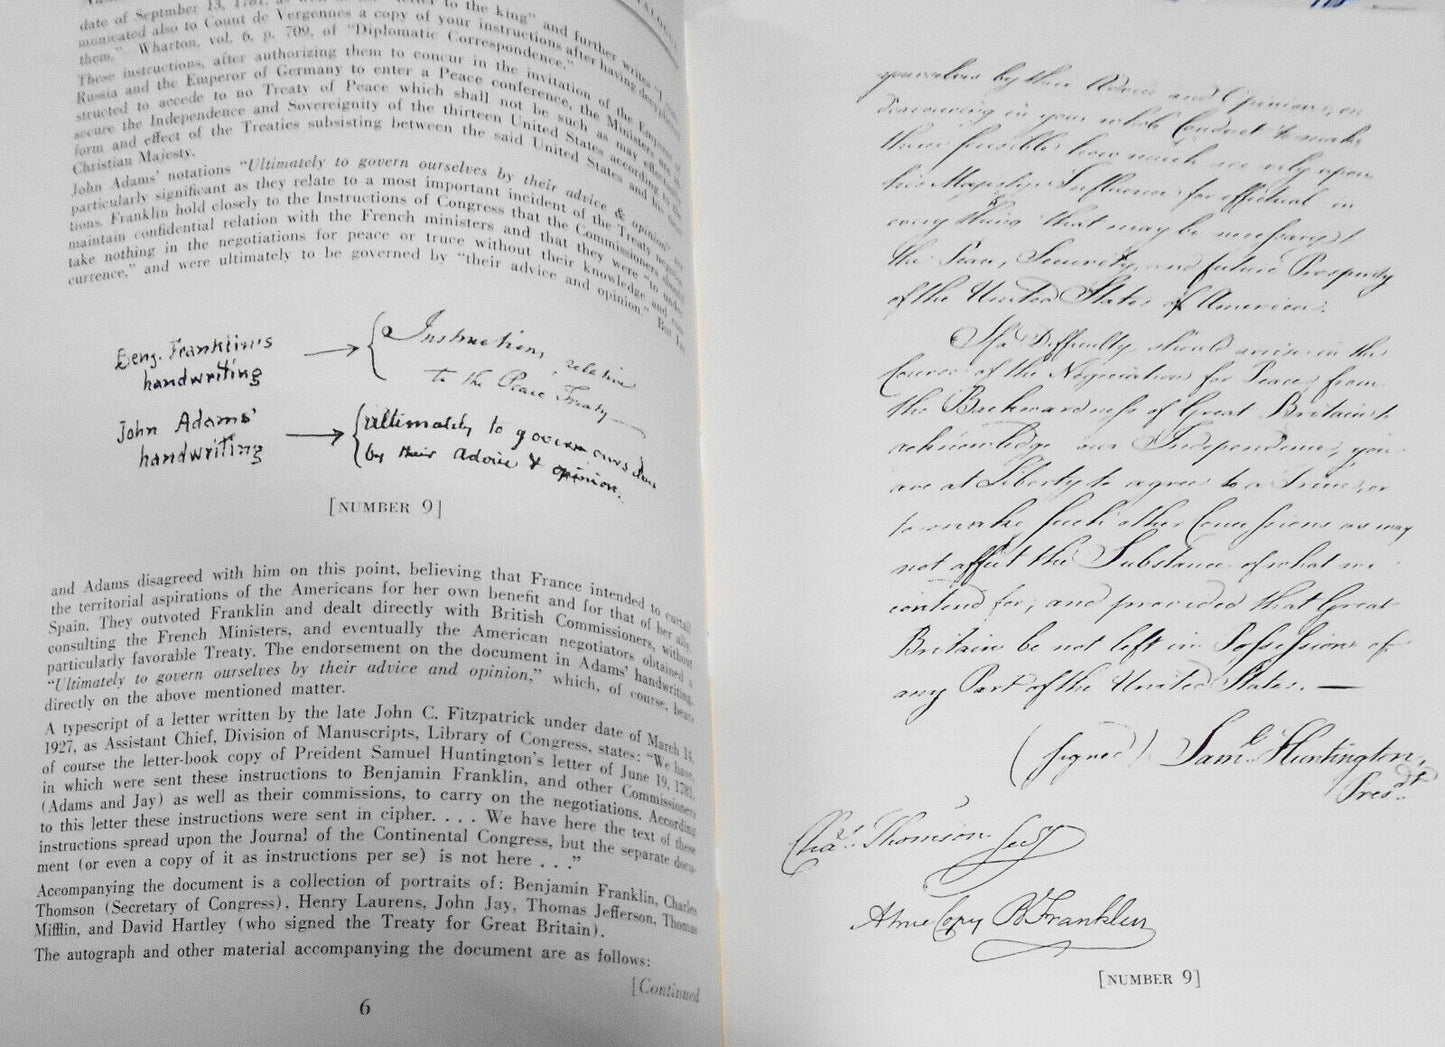 date of Septmber 13, 1781, as well as the "letter to the king" and further writes "I
municated also to Count de Vergennes a copy of your instructions after having decyphered
them." Wharton, vol. 6, p. 709, of "Diplomatic Correspondence."
These instructions, after authorizing them to concur in the invitation of the Empress of
Russia and the Emperor of Germany to enter a Peace conference, the Ministers are in-
structed to accede to no Treaty of Peace which shall not be such as may effectually
secure the Independence and Sovereignity of the thirteen United States according to the
form and effect of the Treaties subsisting between the said United States and his most
Christian Majesty.
John Adams' notations "Ultimately to govern ourselves by their advice & opinion" are
particularly significant as they relate to a most important incident of the Treaty negotia-
tions. Franklin hold closely to the Instructions of Congress that the Commissioners should
maintain confidential relation with the French ministers and that they were "to under-
take nothing in the negotiations for peace or truce without their knowledge and con-
currence," and were ultimately to be governed by "their advice and opinion." But Jay
Benj. Franklin's handwriting
Instructions, relative to the Peace Treaty—
John Adams' handwriting
ultimately to govern ourselves by their advice & opinion.
[NUMBER 9]
and Adams disagreed with him on this point, believing that France intended to curtail
the territorial aspirations of the Americans for her own benefit and for that of her ally,
Spain. They outvoted Franklin and dealt directly with British Commissioners, without
consulting the French Ministers, and eventually the American negotiators obtained a
particularly favorable Treaty. The endorsement on the document in Adams' handwriting,
"Ultimately to govern ourselves by their advice and opinion," which, of course, bears
directly on the above mentioned matter.
A typescript of a letter written by the late John C. Fitzpatrick under date of March 14,
1927, as Assistant Chief, Division of Manuscripts, Library of Congress, states: "We have,
of course the letter-book copy of Preident Samuel Huntington's letter of June 19, 1781,
in which were sent these instructions to Benjamin Franklin, and other Commissioners
(Adams and Jay) as well as their commissions, to carry on the negotiations. According
to this letter these instructions were sent in cipher. . . . We have here the text of these
instructions spread upon the Journal of the Continental Congress, but the separate docu-
ment (or even a copy of it as instructions per se) is not here . . ."
Accompanying the document is a collection of portraits of: Benjamin Franklin, Charles
Thomson (Secretary of Congress), Henry Laurens, John Jay, Thomas Jefferson, Thomas
Mifflin, and David Hartley (who signed the Treaty for Great Britain).
The autograph and other material accompanying the document are as follows:
[Continued
6
yourselves by their Advice and Opinion, en
deavouring in your whole Conduct to make
them sensible how much we rely upon
his Majesty's Influence for effectual in
every thing that may be necessary to
the Peace, Security, and future Prosperity
of the United States of America.
If a Difficulty should arise in the
Course of the Negociation for Peace, from
the Backwardness of Great Britain to
acknowledge our Independence, you
are at Liberty to agree to a Truce, or
to make such other Concessions as may
not affect the Substance of what we
contend for; and provided that Great
Britain be not left in Possession of
any Part of the United States. —
(signed) Saml. Huntington,
Presdt.
Chas. Thomson Secy
A true Copy B Franklin
[NUMBER 9]